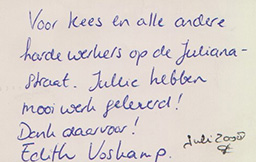 Voor Kees en alle andere
harde werkers op de Juliana-
straat. Jullie hebben
mooi werk geleverd!
Dank daarvoor!
Juli 2000
Edith Voskamp.